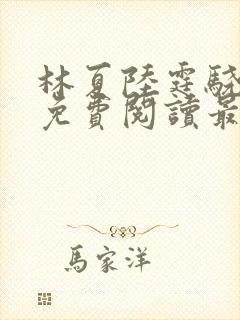 林夏陸霆驍
免費閱讀最
馬家洋